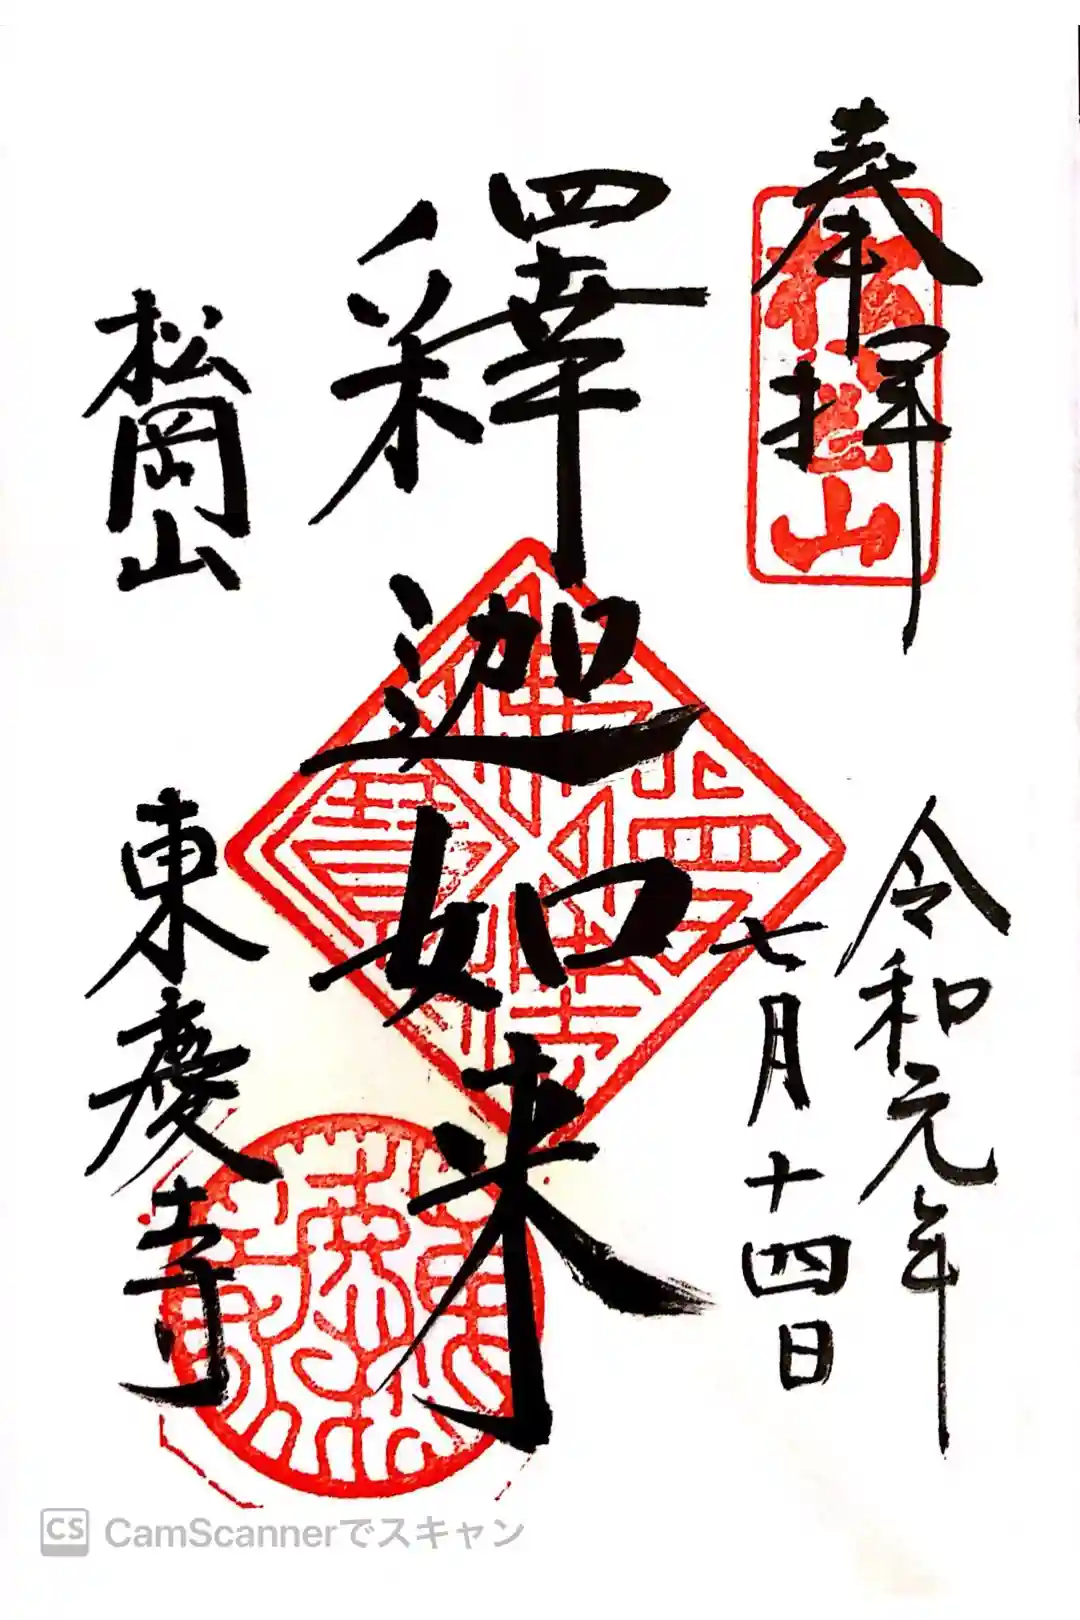 奉拝
松岡山
令和元年
七月十四日
釋迦如来
松岡山
東慶寺
CS CamScannerでスキャン